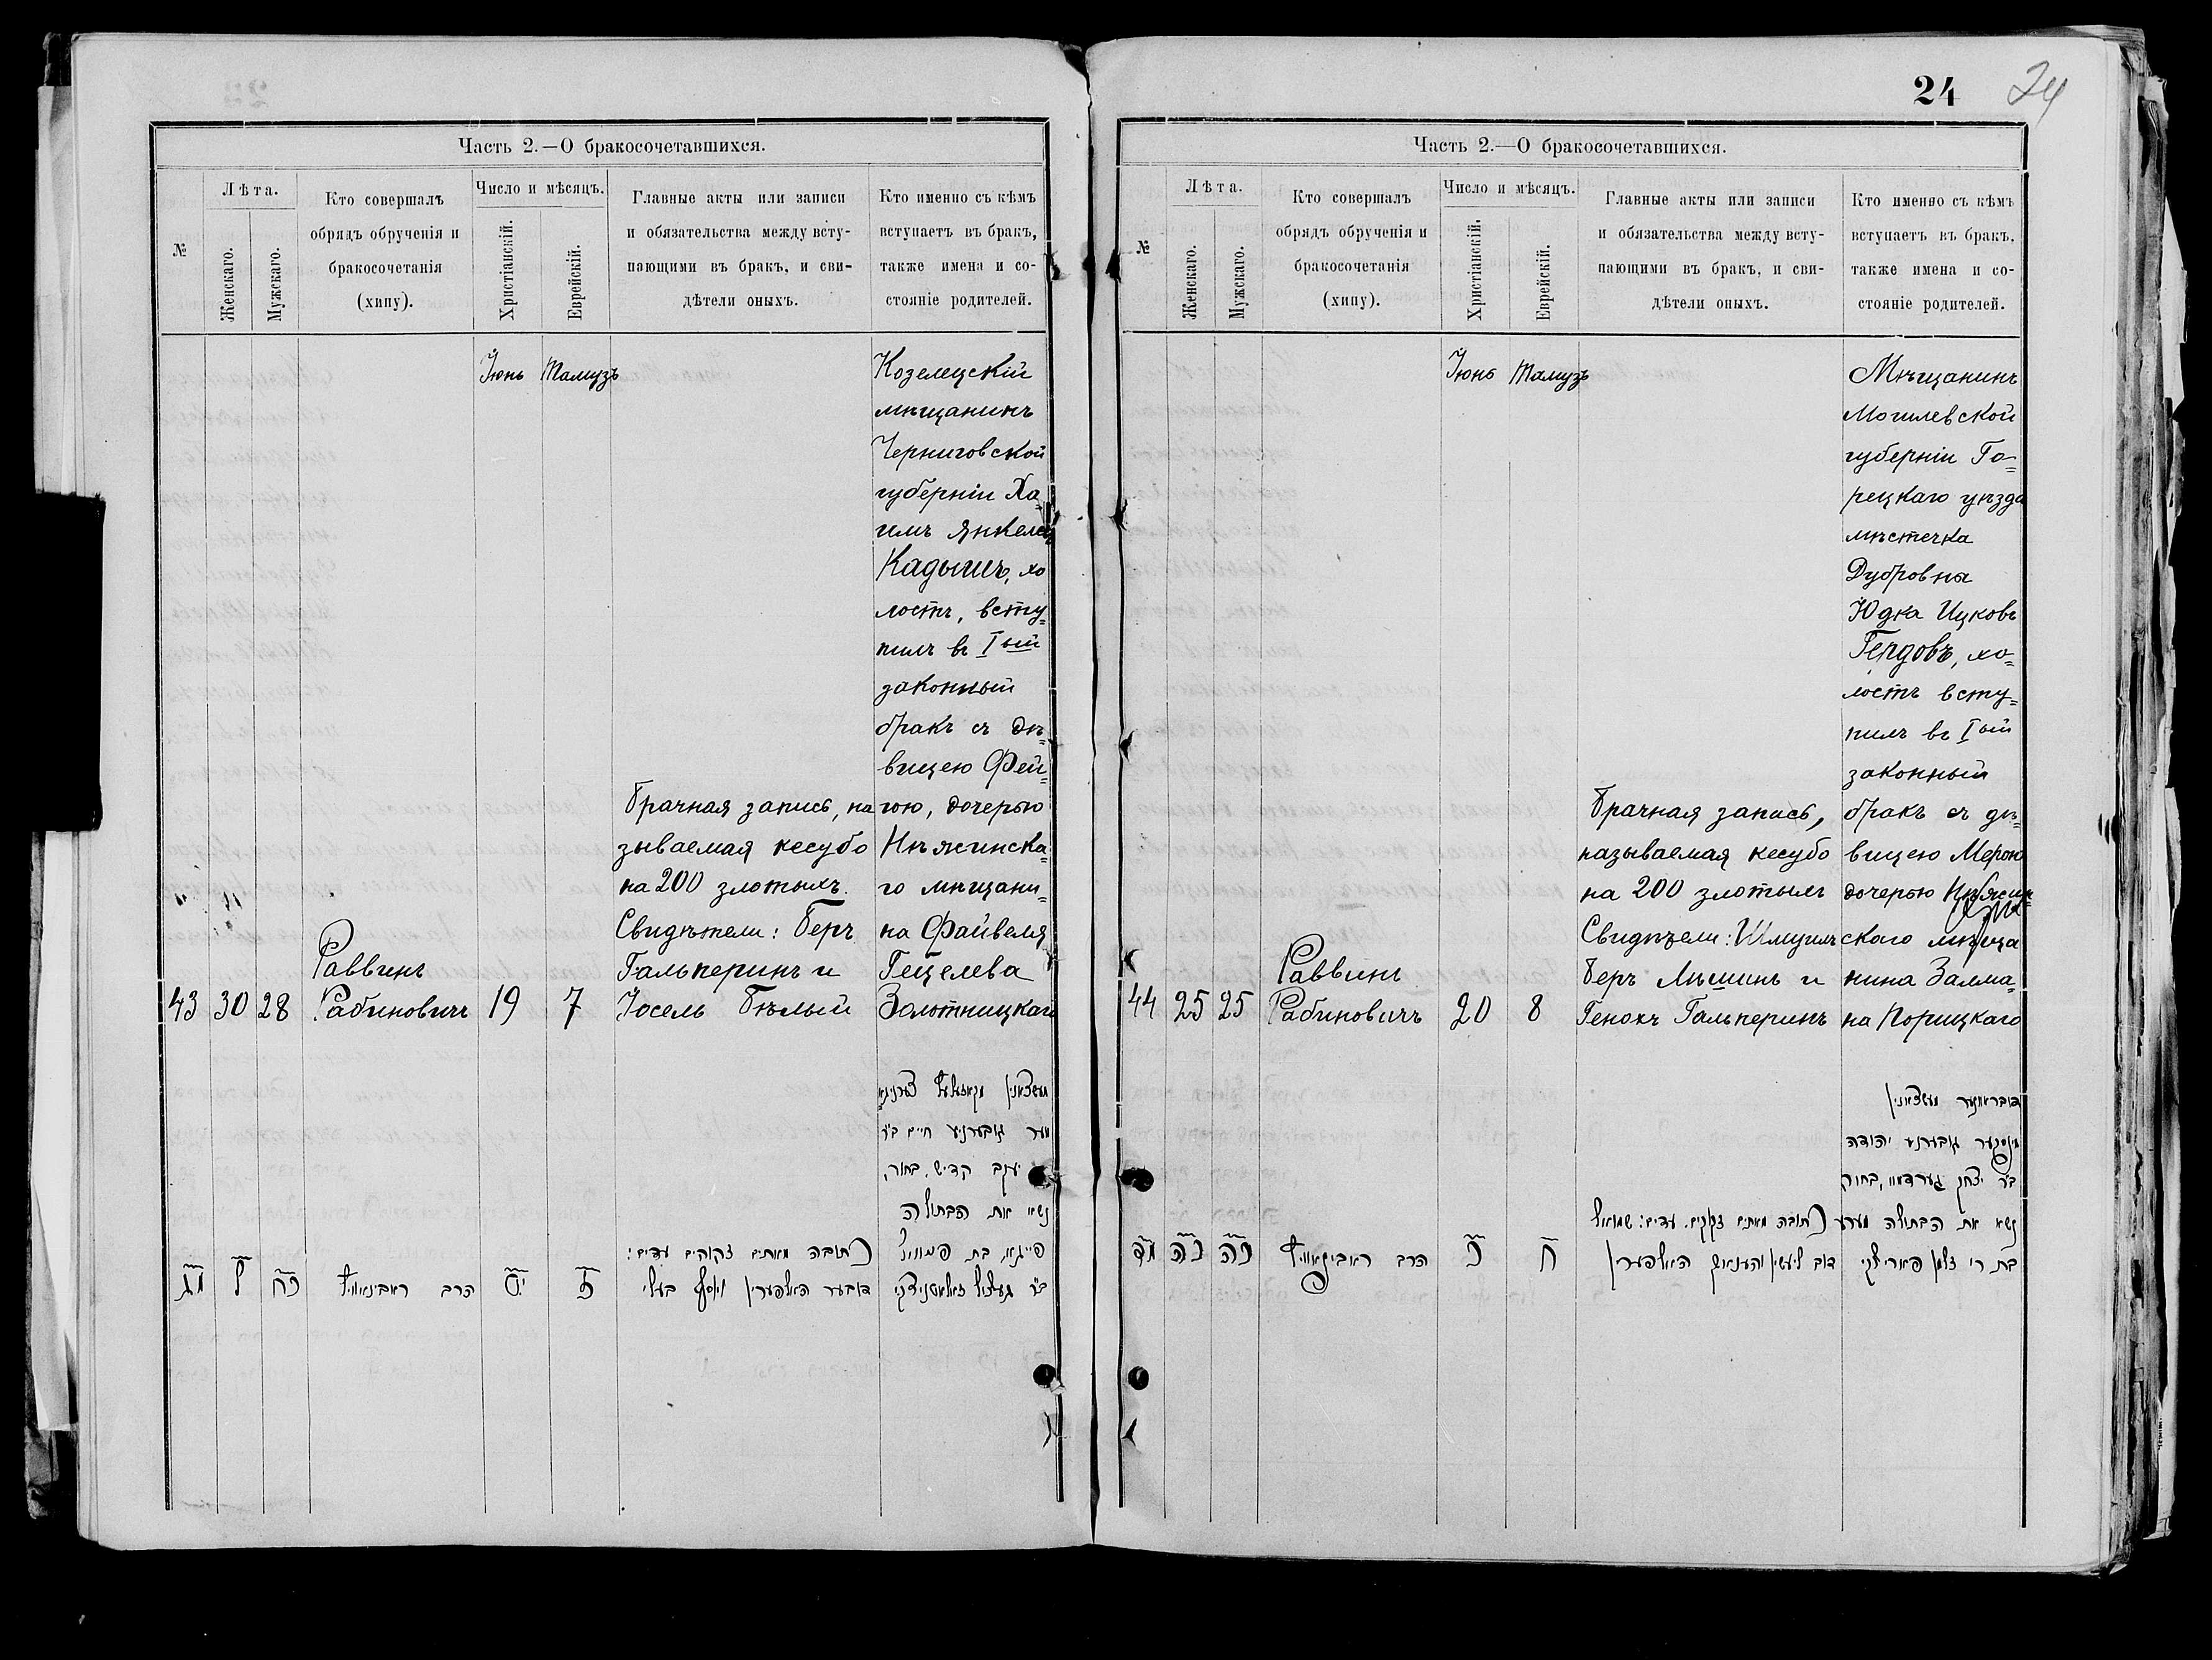 Часть 2.—О бракосочетавшихся.
№
Лѣта.
Женскаго.
Мужскаго.
Кто совершалъ
обрядъ обрученія и
бракосочетанія
(хипу).
Число и мѣсяцъ.
Христіанскій.
Еврейскій.
Главные акты или записи
и обязательства между всту-
пающими въ бракъ, и сви-
дѣтели оныхъ.
Кто именно съ кѣмъ
вступаетъ въ бракъ,
также имена и со-
стояніе родителей.
43
30
28
Раввинъ
Рабиновичъ
Іюнь
19
Тамузъ
7
Брачная запись, на
зываемая кесубо
на 200 злотыхъ.
Свидѣтели: Беръ
Гальперинъ и
Іосель Бѣлый
Козелецскій
мѣщанинъ
Черниговской
губерніи Ха
имъ Янкелев
Кадышъ, хо
лостъ, всту=
пилъ въ Iый
законный
бракъ съ дѣ=
вицею Фей=
гою, дочерью
Нѣжинска
го мѣщани=
на Файвеля
Гецелева
Золотницкаго
חיים ב״ר
יעקב קדיש, בחור,
נשא את הבתולה
פייגא בת
כתובה מאתים זקוקים עדים:
מג
ל
כח
הרב ראבינאוויץ
יט
ז
24
24
Часть 2.—О бракосочетавшихся.
№
Лѣта.
Женскаго.
Мужскаго.
Кто совершалъ
обрядъ обрученія и
бракосочетанія
(хипу).
Число и мѣсяцъ.
Христіанскій.
Еврейскій.
Главные акты или записи
и обязательства между всту-
пающими въ бракъ, и сви-
дѣтели оныхъ.
Кто именно съ кѣмъ
вступаетъ въ бракъ,
также имена и со-
стояніе родителей.
44
25
25
Раввинъ
Рабиновичъ
Іюнь
20
Тамузъ
8
Брачная запись,
называемая кесубо
на 200 злотыхъ
Свидѣтели: Шмуилъ
Беръ Лѣшинъ и
Генохъ Гальперинъ
Мѣщанинъ
Могилевской
губерніи Го=
рецкаго уѣзда
мѣстечка
Дубровна
Юдка Ицковъ
Гердовъ, хо=
лостъ всту=
пилъ въ Iый
законный
бракъ съ дѣ=
вицею Мерою
дочерью Нѣжин=
скаго мѣща
нина Залма=
на Порицкаго
יהודה
ב״ר יצחק בחור
נשא את הבתולה מערע כתובה מאתים זקוקים. עדים: שמואל
מד
כה
כה
הרב ראבינאוויץ
כ
ח